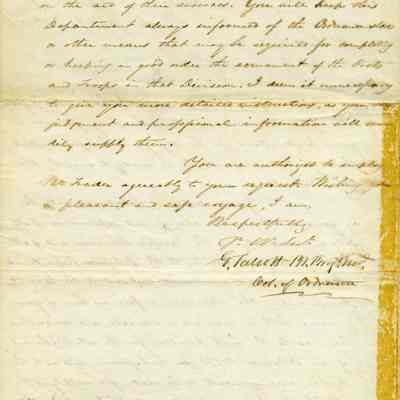 or the act of these services. You will keep this
Department always informed of the Ordnance stores
or other means that may be required for completing
or keeping in good order the armament of the Posts
and troops in that Division. I deem it unnecessary
to give you more detailed instructions, as your
judgment and professional information will rea-
dily supply them.
You are authorized to employ
Mr Trader agreeably to your request. Wishing you
a pleasant and safe voyage, I am,
Respectfully
Yr. Ob. Sert.
G. Talcott
Col. of Ordnance